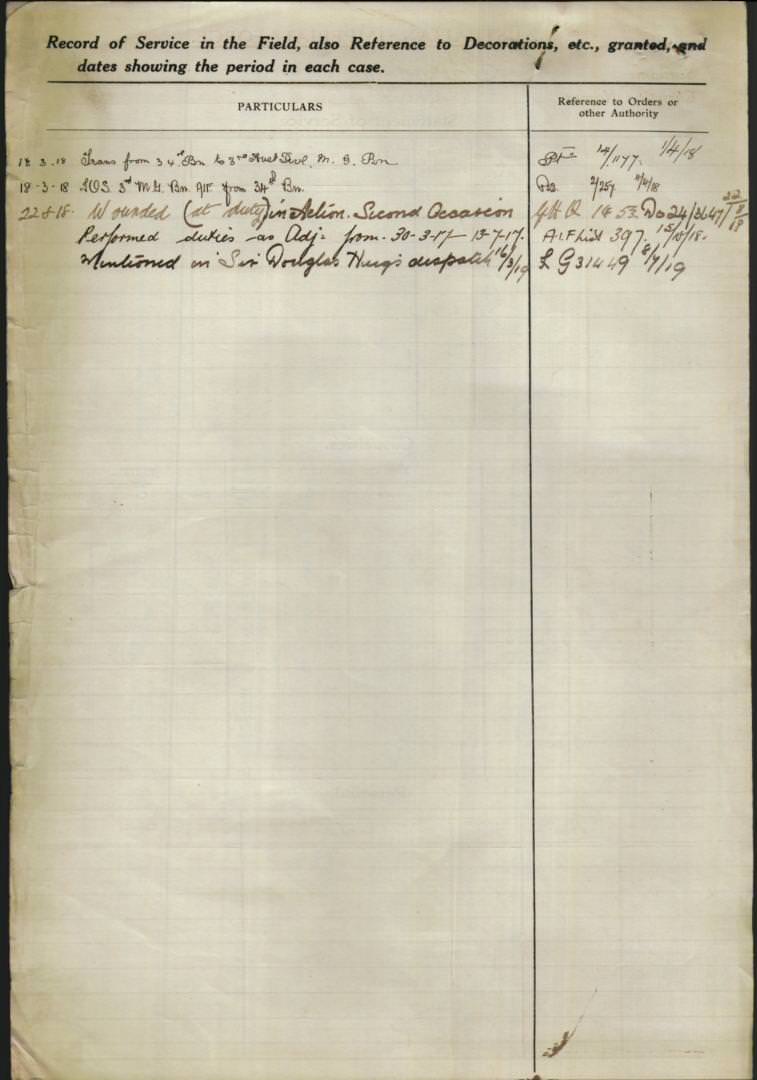 Record of Service in the Field, also Reference to Decorations, etc., granted, and
dates showing the period in each case.
PARTICULARS
Reference to Orders or
other Authority
18 3.18 Trans from 34th Bn to 3rd Aust Divl. M. G. Bn 14/1177. 1/4/18
18-3-18 TOS 3rd M.G. Bn from 34th Bn. Do. 2/257 11/4/18
22 8 18. Wounded (at duty) in Action. Second Occasion G H Q 1853 Do 24/3647/
Performed duties as Adj: from 30-3-17 13-7-17. A.I.F list 397. 15/10/18.
Mentioned in Sir Douglas Haig's despatch 16/3/19 L G 31449 8/7/19